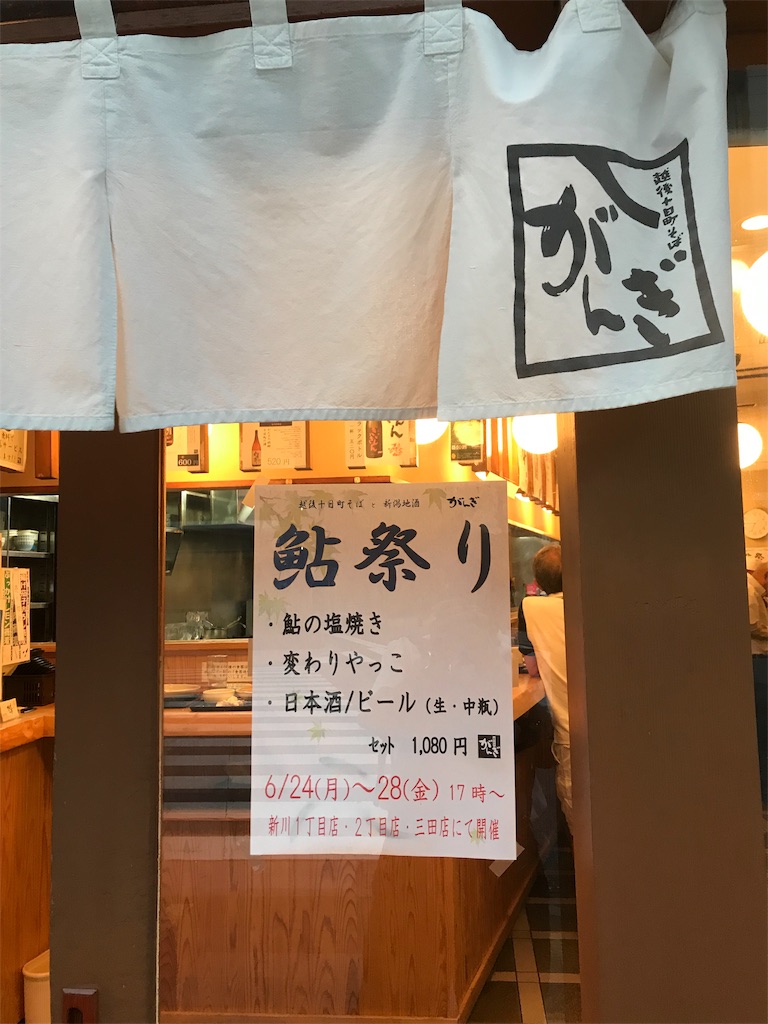 越後十日町そば
がんぎ
600円
520円
越後十日町そば と 新潟地酒 がんぎ
鮎祭り
・鮎の塩焼き
・変わりやっこ
・日本酒/ビール（生・中瓶）
セット 1,080円 がんぎ
6/24(月)～28(金) 17時～
新川1丁目店・2丁目店・三田店にて開催